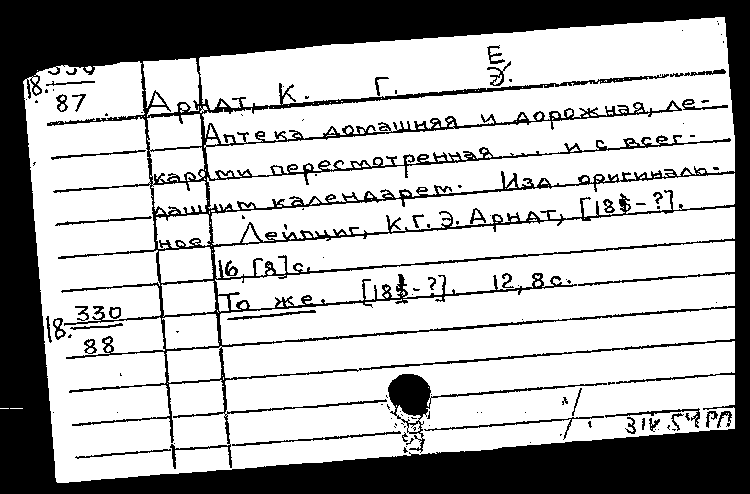 18. 330
87
Е
Арндт, К. Г. Э.
Аптека домашняя и дорожная, ле-
карями пересмотренная ... и с всег-
дашним календарем. Изд. оригиналь-
ное. Лейпциг, К.Г.Э. Арндт, [18 -?].
16, [8] с.
18. 330
88
То же. [18 -?]. 12, 8 с.